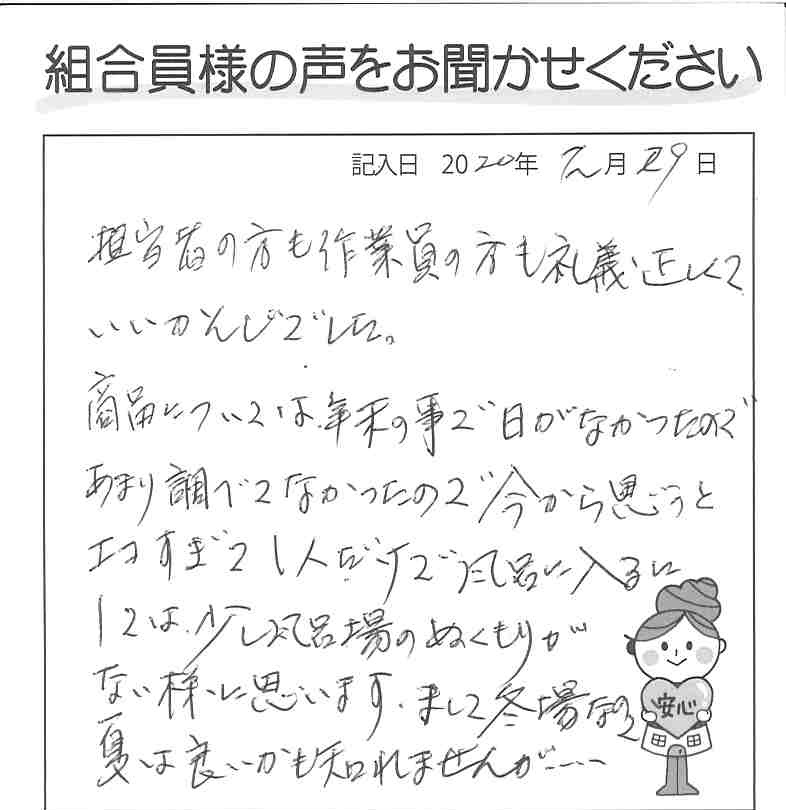 組合員様の声をお聞かせください
記入日 2020年 元月29日
担当者の方も作業員の方も礼義正しくて
いいかんじでした。
商品については年末の事で日がなかったので
あまり調べてなかったので今から思うと
エコすぎて1人だけで風呂に入るに
しては、少し風呂場のぬくもりが
ない様に思います、まして冬場なので
夏は良いかも知れませんが……
安心